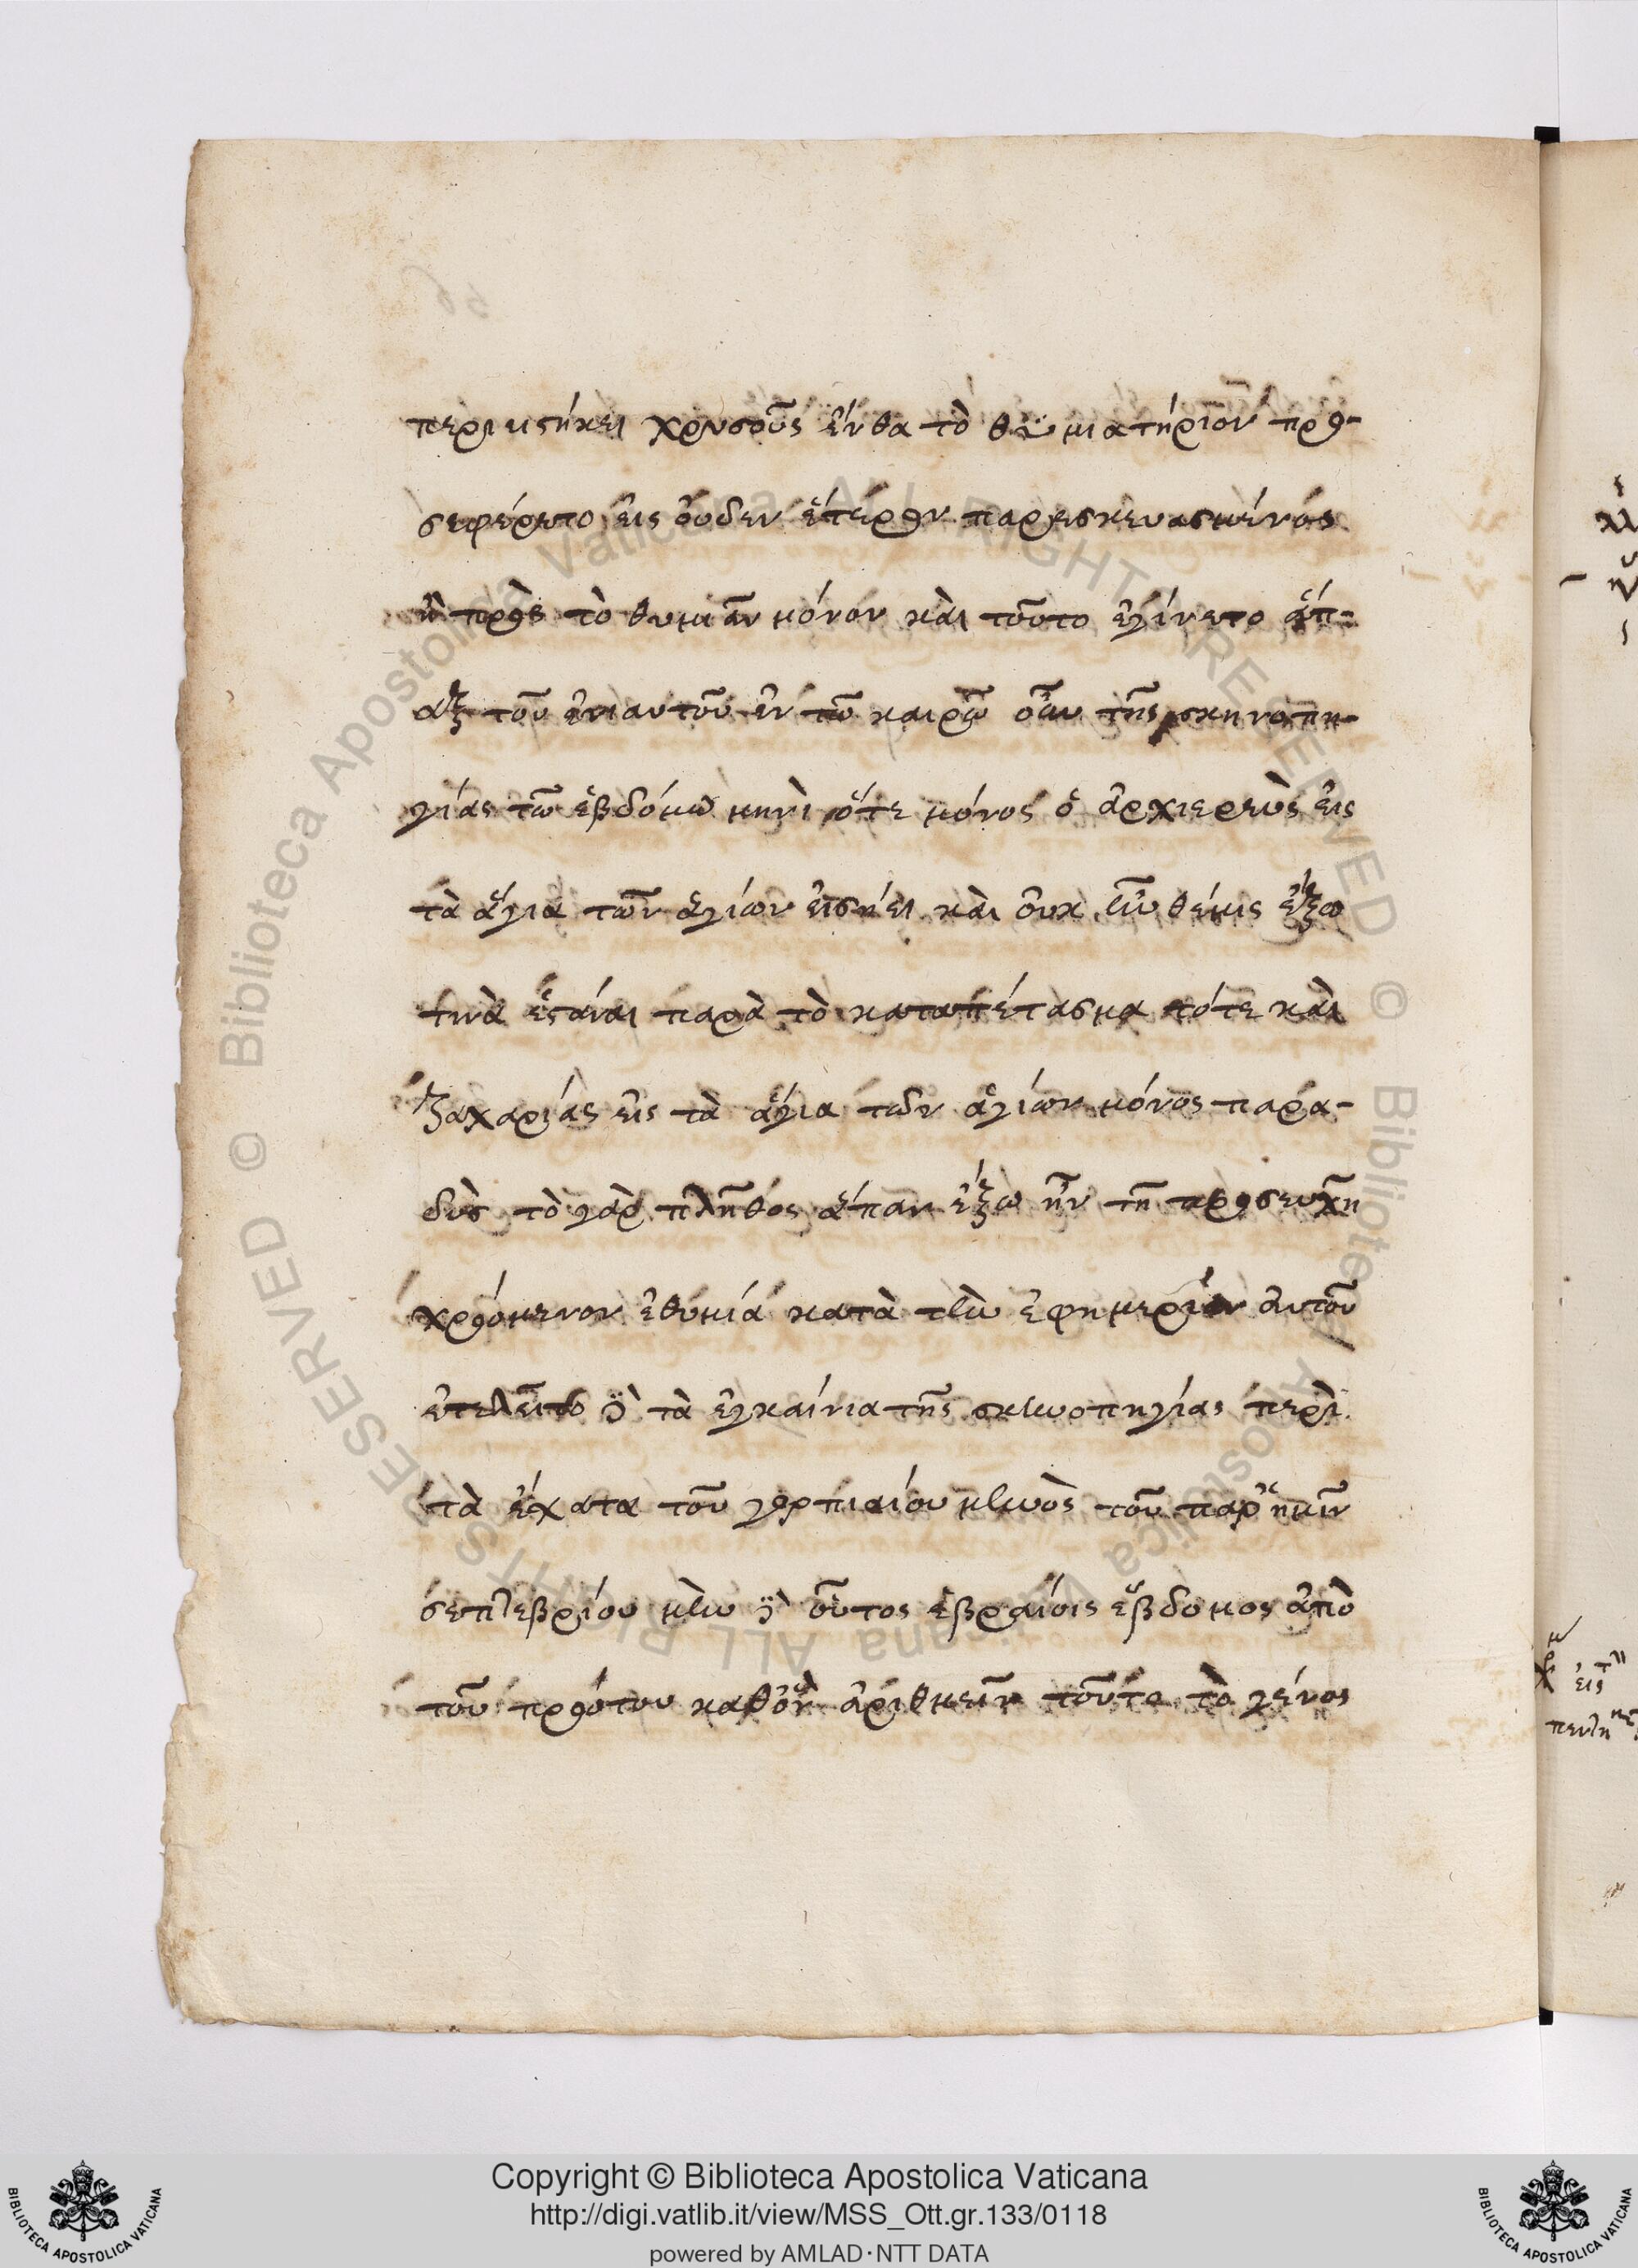 περιειστήκει χρυσοῦς ἔνθα τὸ θϋμιατήριον προ-
σεφέρετο εἰς οὐδεν ἕτερον παρεσκευασμένος
ἢ πρὸς τὸ θυμιᾶν μόνον καὶ τοῦτο ἐγίνετο ἅπ-
αξ τοῦ ἐνιαυτοῦ ἐν τῶ καιρῶ οὖν τῆς σκηνοπη-
γίας τῶ ἑβδόμω μηνὶ ὅτε μόνος ὁ ἀρχιερεὺς εἰς
τὰ ἅγια τῶν ἁγίων εἰσήει καὶ οὐκ ἦν θέμις ἔξω
τινὰ ἑστάναι παρὰ τὸ καταπέτασμα τότε καὶ
ζαχαρίας εἰς τὰ ἅγια τῶν ἁγίων μόνος παρα-
δὺς τὸ γὰρ πλῆθος ἅπαν ἔξω ἦν τῆ προσευχῆ
χρώμενον ἐθυμία κατὰ τὴν ἐφημερίαν αὐτοῦ
ἐτελεῖτο δὲ τὰ ἐγκαίνια τῆς σκηνοπηγίας περὶ
τὰ ἔσχατα τοῦ γορπιαίου μηνὸς τοῦ παρ' ἡμῖν
σεπτεβρίου μὴν δὲ οὗτος ἑβραίοις ἕβδομος ἀπὸ
τοῦ πρώτου καθ' ὃν ἀριθμεῖν τοῦτο τὸ γένος
Copyright © Biblioteca Apostolica Vaticana
http://digi.vatlib.it/view/MSS_Ott.gr.133/0118
powered by AMLAD·NTT DATA
BIBLIOTECA APOSTOLICA VATICANA
BIBLIOTECA APOSTOLICA VATICANA
© Biblioteca Apostolica Vaticana ALL RIGHTS RESERVED © Biblioteca Apostolica Vaticana ALL RIGHTS RESERVED